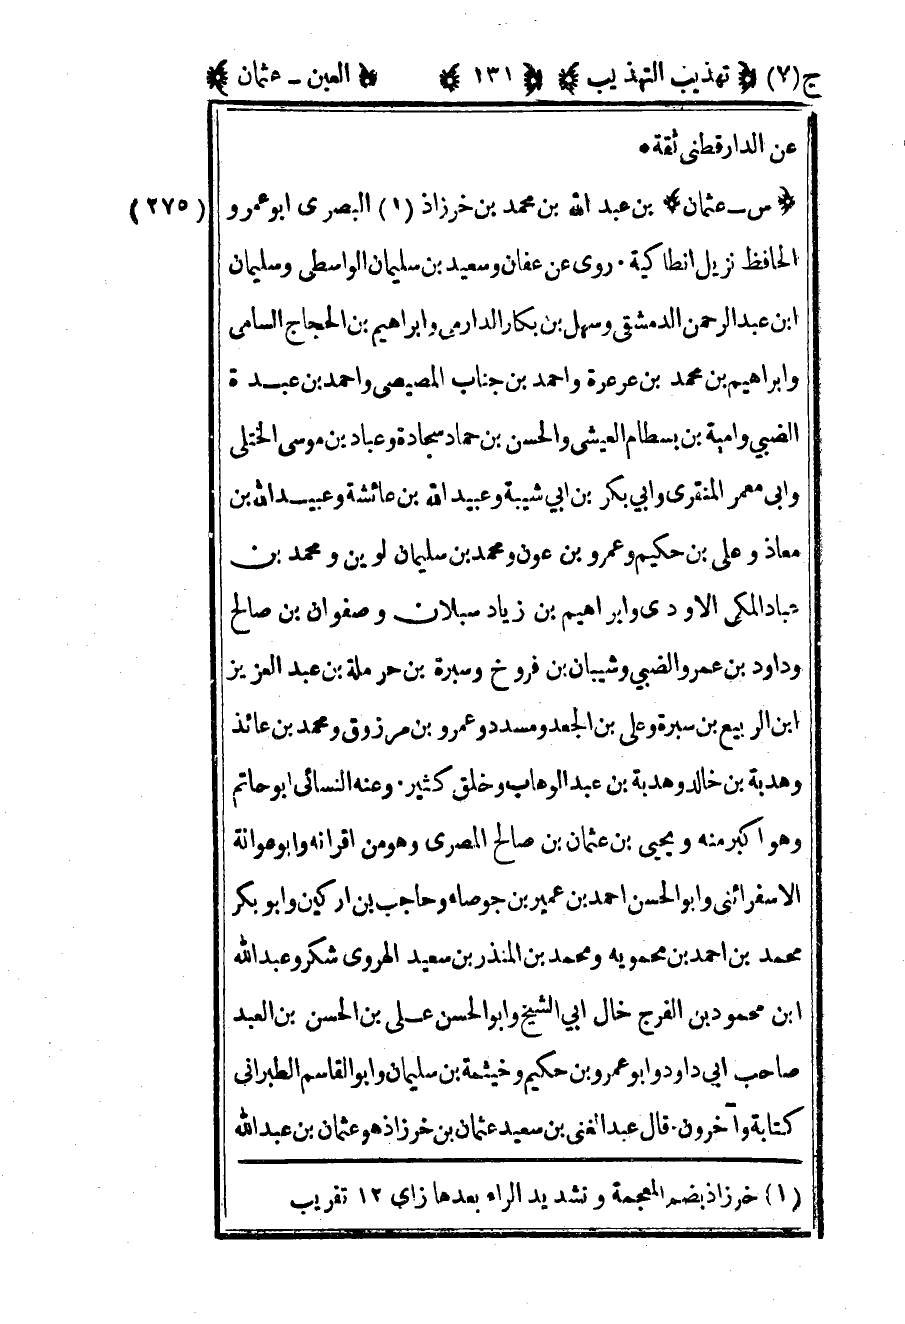 ج(٧) ﴿ تهذيب التهذيب ﴾ ﴿ ١٣١ ﴾ ﴿ العين ـ عثمان ﴾
عن الدارقطنى ثقة •
﴿ س ـ عثمان ﴾ بن عبد الله بن محمد بن خرزاذ (١) البصرى ابو عمرو (٢٧٥)
الحافظ نزيل انطاكية · روى عن عفان وسعيد بن سليمان الواسطى وسليمان
ابن عبد الرحمن الدمشقى وسهل بن بكار الدارمى وابراهيم بن الحجاج السامى
وابراهيم بن محمد بن عرعرة واحمد بن جناب المصيصى واحمد بن عبدة
الضبي وامية بن بسطام العيشى والحسن بن حماد سجادة وعباد بن موسى الختلى
وابى معمر المنقرى وابي بكر بن ابي شيبة وعبيد الله بن عائشة وعبيد الله بن
معاذ و على بن حكيم وعمرو بن عون ومحمد بن سليمان لوين و محمد بن
عباد المكى الاودى وابراهيم بن زياد سبلان وصفوان بن صالح
وداود بن عمرو الضبي وشيبان بن فروخ وسبرة بن حرملة بن عبد العزيز
ابن الربيع بن سبرة وعلى بن الجعد ومسدد وعمرو بن مرزوق ومحمد بن عائذ
وهدبة بن خالد وهدبة بن عبد الوهاب وخلق كثير · وعنه النسائى ابو حاتم
وهو اكبر منه و يحيى بن عثمان بن صالح المصرى وهو من اقرانه وابو عوانة
الاسفرائنى وابو الحسن احمد بن عمير بن جوصاء وحاجب بن اركين وابو بكر
محمد بن احمد بن محمويه ومحمد بن المنذر بن سعيد الهروى شكر وعبد الله
ابن محمود بن الفرج خال ابي الشيخ وابو الحسن على بن الحسن بن العبد
صاحب ابي داود وابو عمرو بن حكيم وخيثمة بن سليمان وابو القاسم الطبرانى
كتابة وآخرون · قال عبد الغنى بن سعيد عثمان بن خرزاذ هو عثمان بن عبد الله
(١) خرزاذ بضم المعجمة و تشديد الراء بعدها زاى ١٢ تقريب